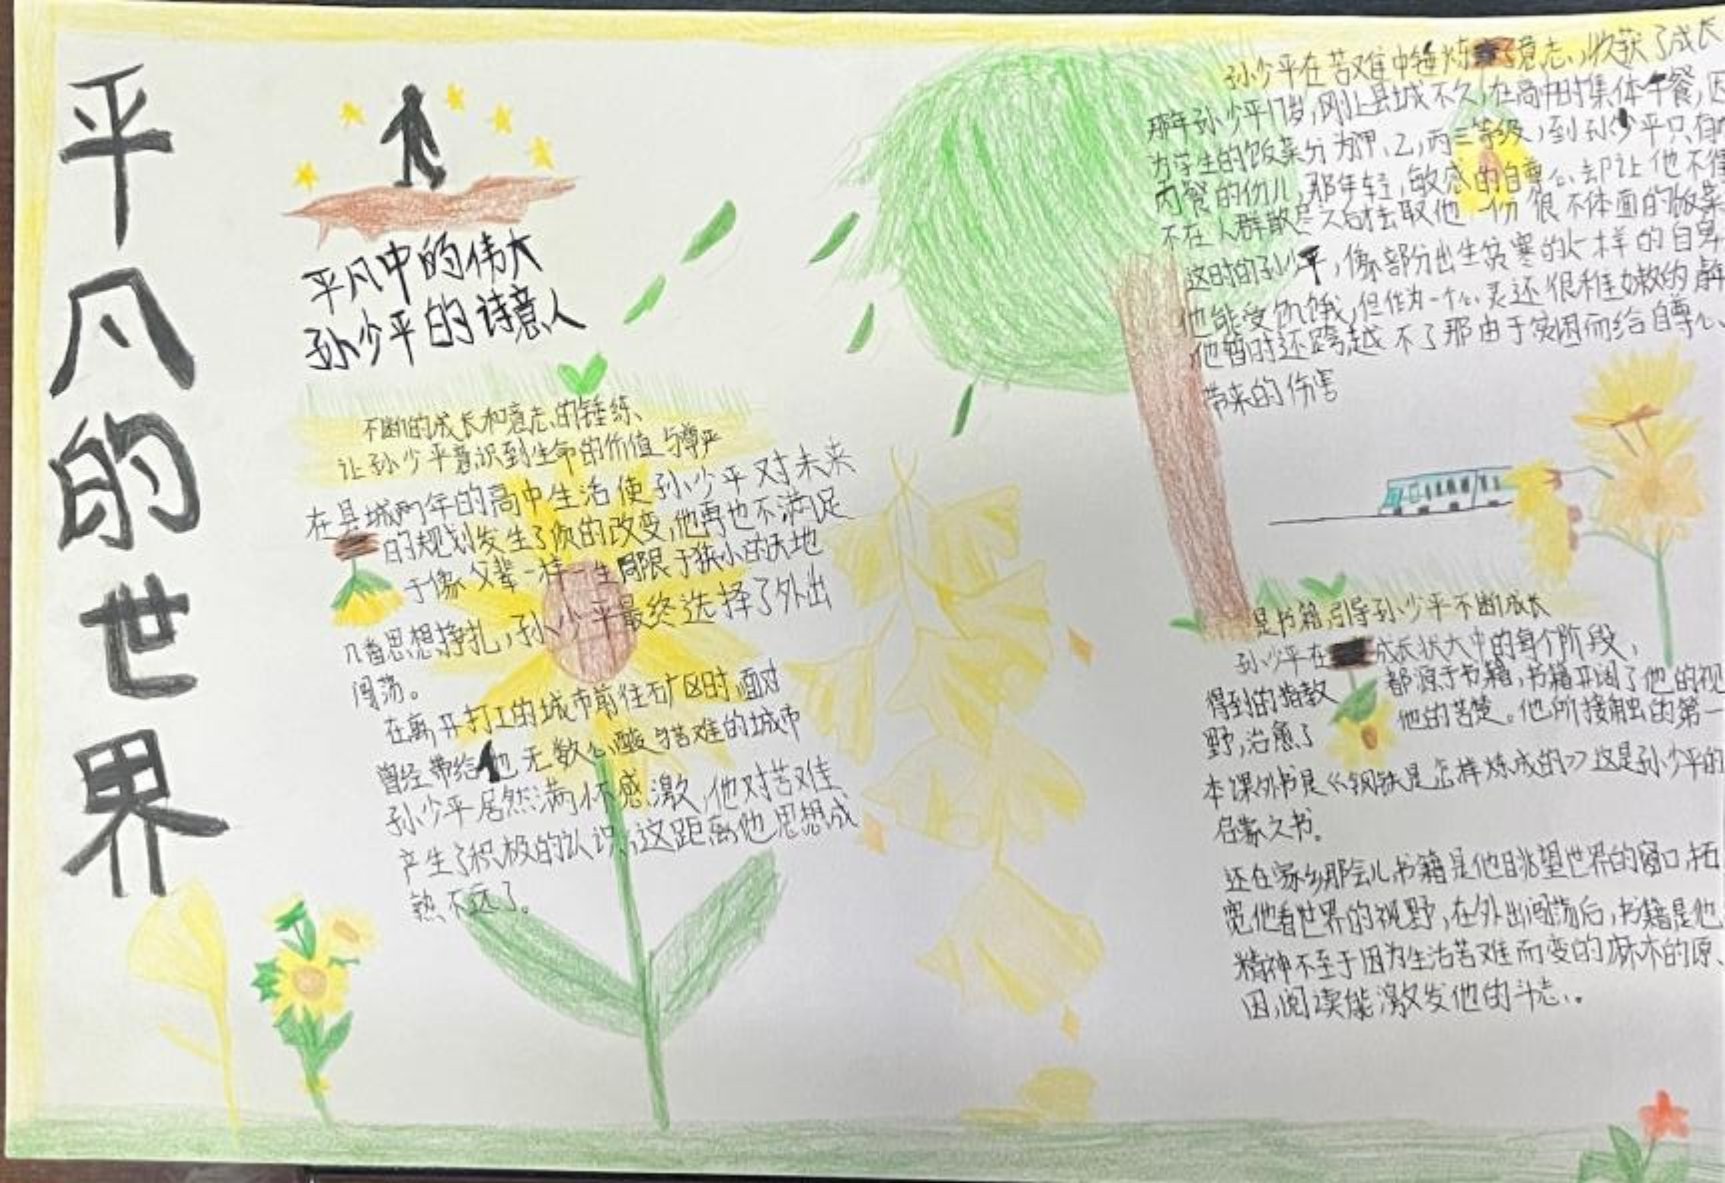 平凡的世界
平凡中的伟大
孙少平的诗意人
不断的成长和意志的锤练、
让孙少平意识到生命的价值与尊严
在县城两年的高中生活使孙少平对未来
的规划发生了质的改变,他再也不满足
于像父辈一样一生局限于狭小的天地
几番思想挣扎,孙少平最终选择了外出
闯荡。
在离开打工的城市前往矿区时,面对
曾经带给他无数心酸与苦难的城市
孙少平居然满怀感激,他对苦难
产生了积极的认识,这距离他思想成
熟不远了。
孙少平在苦难中锤炼了意志,收获了成长
那年孙少平17岁,刚上县城不久,在高中时集体午餐,因
为学生的饭菜分为甲、乙,丙三等级,到孙少平只有
丙餐的份儿,那年轻,敏感的自尊心却让他不得
不在人群散尽之后才去取他一份很不体面的饭菜
这时的孙少平,像部分出生贫寒的人一样的自卑
他能受饥饿,但作为一个心灵还很稚嫩的
他暂时还跨越不了那由于贫困而给自尊心
带来的伤害
是书籍引导孙少平不断成长
孙少平在成长状大中的每个阶段,
得到的指教都源于书籍,书籍开阔了他的视
野,治愈了他的苦楚。他所接触的第一
本课外书是《钢铁是怎样炼成的》这是孙少平的
启蒙之书。
还在家乡那会儿书籍是他眺望世界的窗口,拓
宽他看世界的视野,在外出闯荡后,书籍是他
精神不至于因为生活苦难而变的麻木的原、
因,阅读能激发他的斗志。